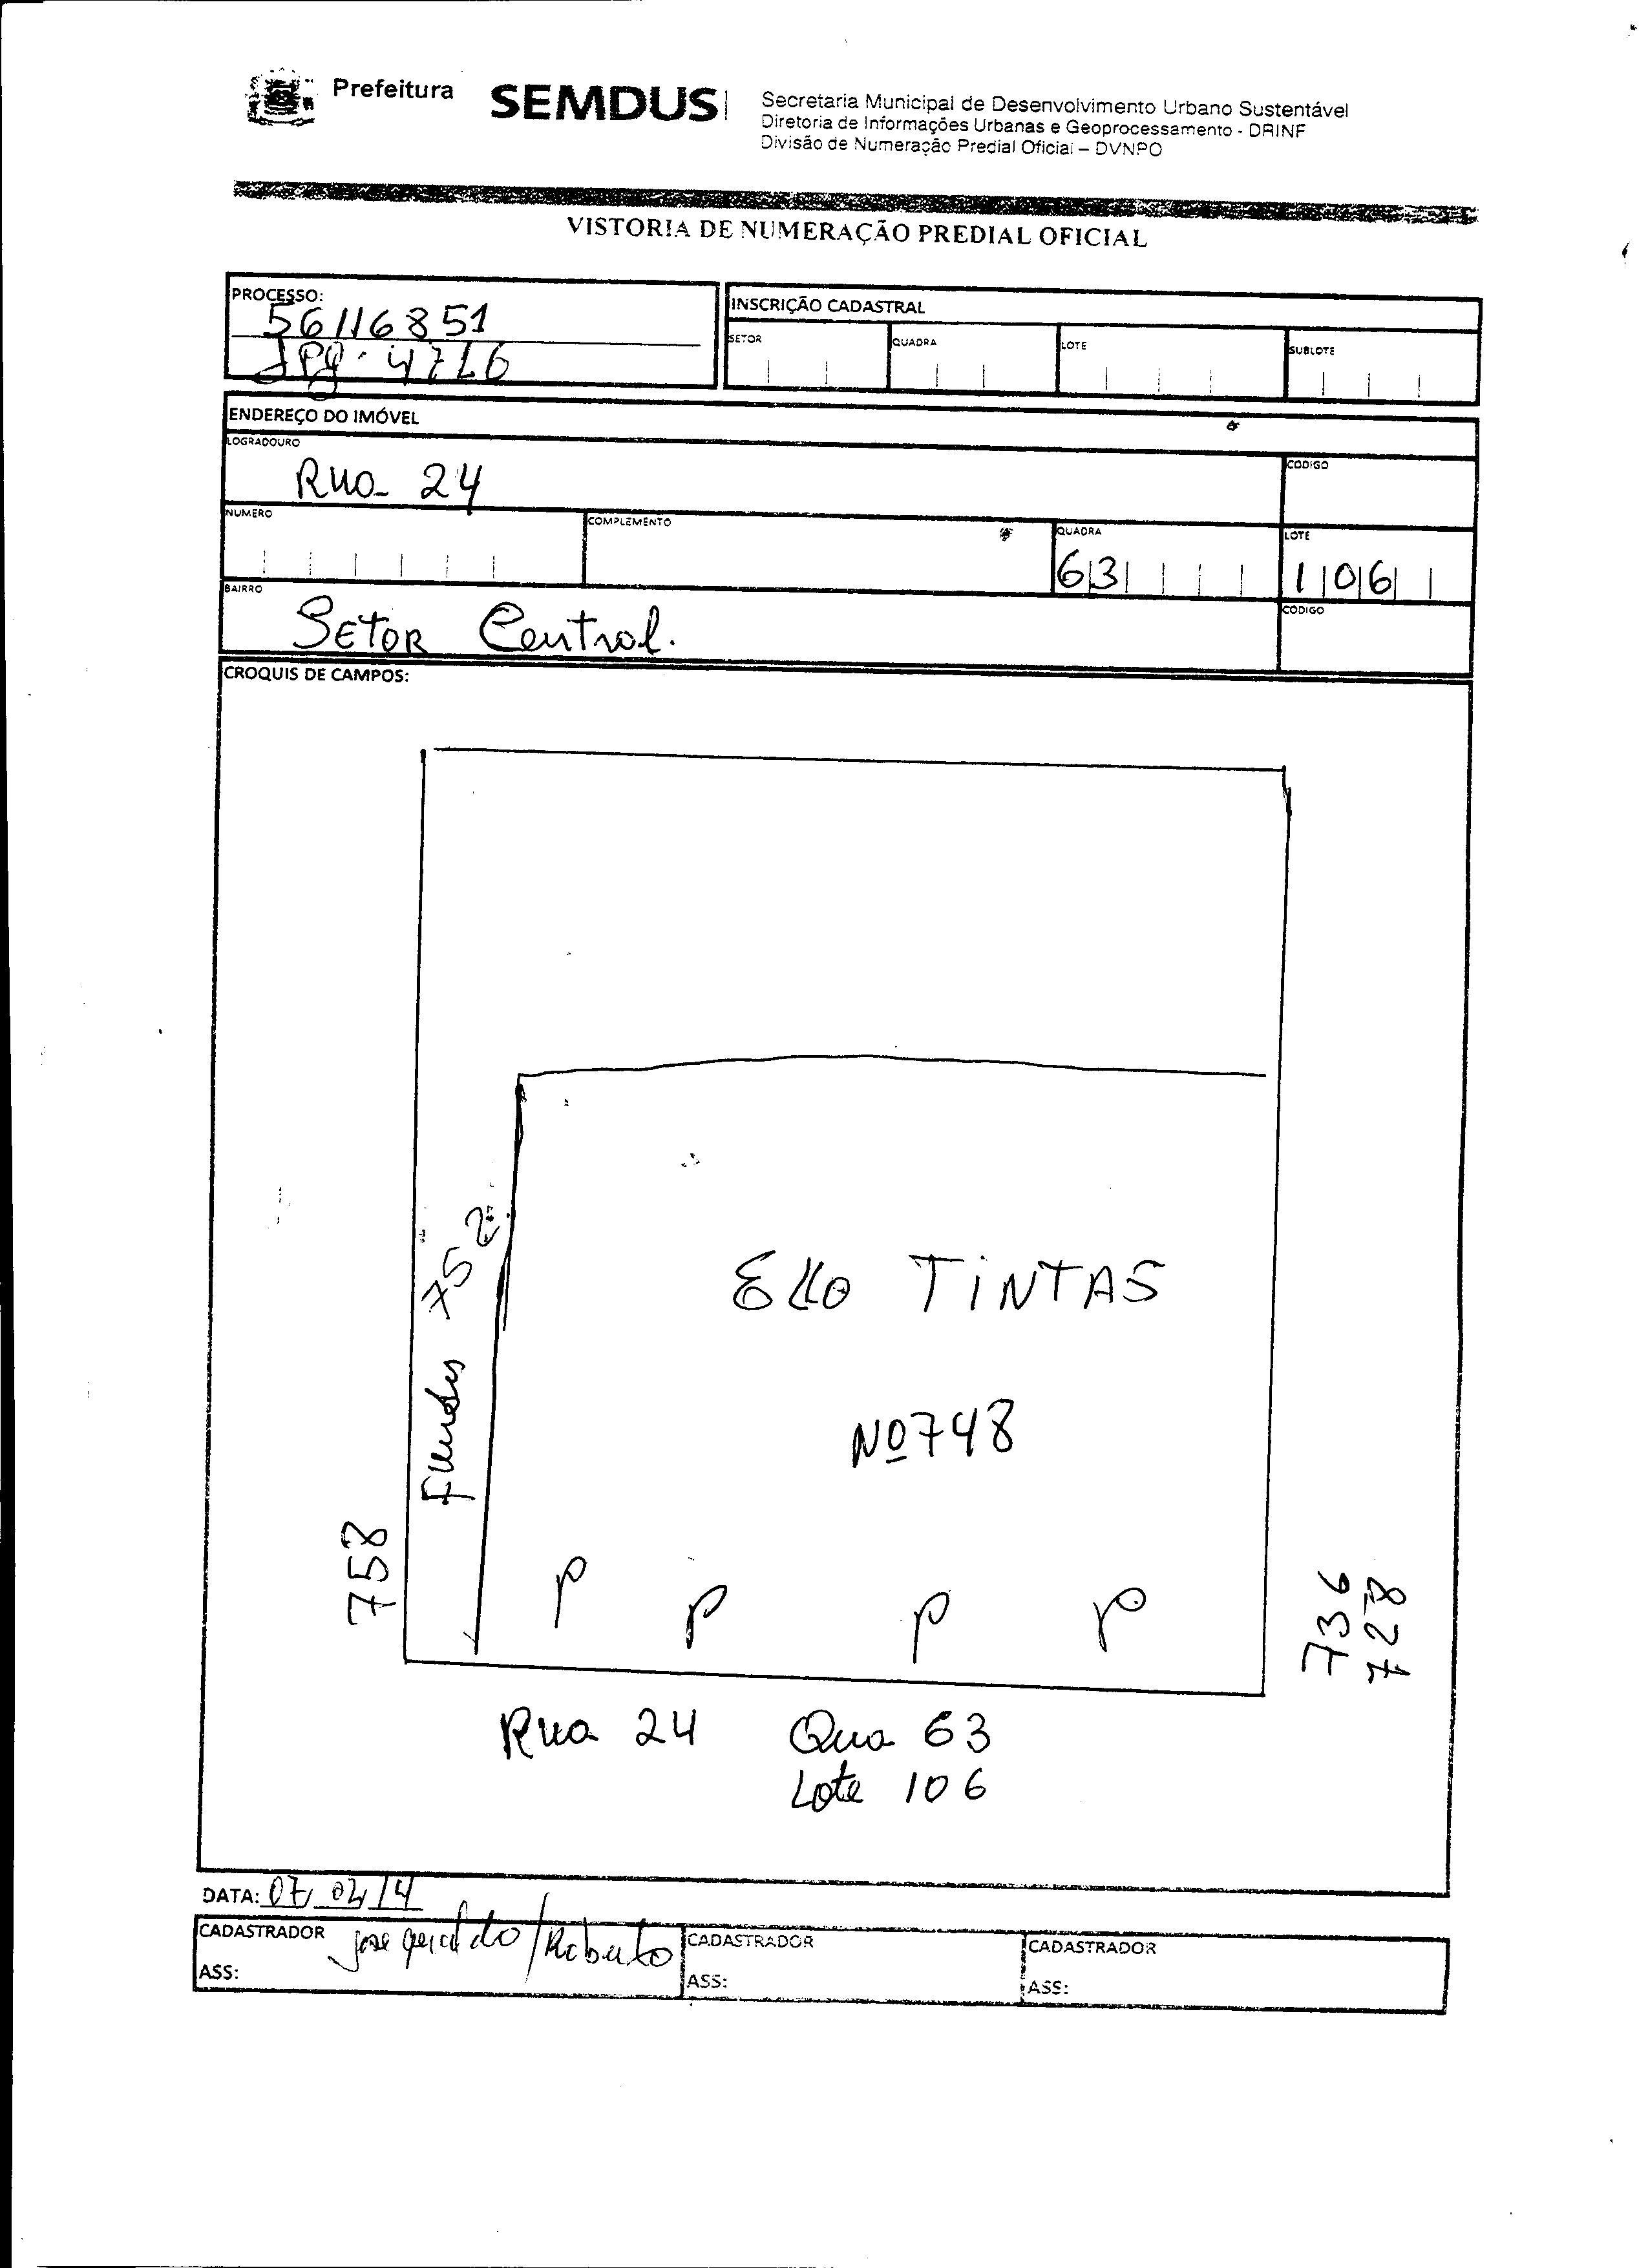 Prefeitura
SEMDUS
Secretaria Municipal de Desenvolvimento Urbano Sustentável
Diretoria de Informações Urbanas e Geoprocessamento - DRINF
Divisão de Numeração Predial Oficial – DVNPO
VISTORIA DE NUMERAÇÃO PREDIAL OFICIAL
PROCESSO:
56116851
INSCRIÇÃO CADASTRAL
SETOR QUADRA LOTE SUBLOTE
ENDEREÇO DO IMÓVEL
LOGRADOURO CODIGO
Rua 24
NUMERO COMPLEMENTO QUADRA LOTE
63 106
BAIRRO CODIGO
SETOR Central.
CROQUIS DE CAMPOS:
Fundos 752
Ello TINTAS
Nº 748
758
P P P P
736
728
Rua 24 Qua 63
Lote 106
DATA: 07/02/14
CADASTRADOR Roberto CADASTRADOR CADASTRADOR
ASS: ASS: ASS: